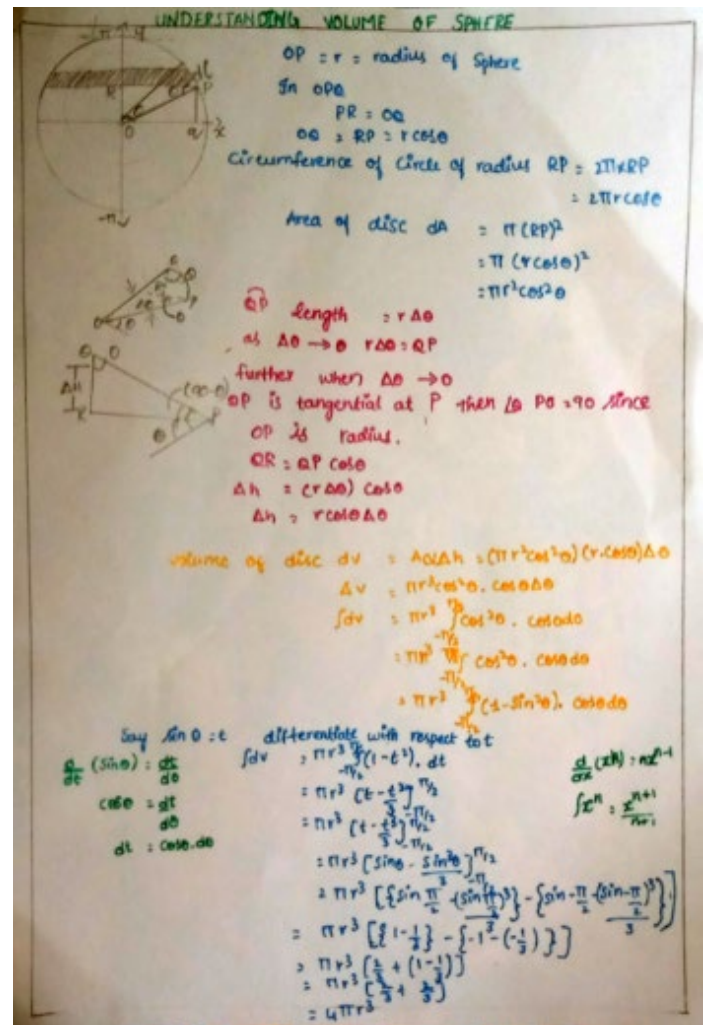 UNDERSTANDING VOLUME OF SPHERE
OP = r = radius of Sphere
In OPQ
PR = OQ
OQ = RP = r cosθ
Circumference of Circle of radius RP = 2π×RP
= 2πr cosθ
Area of disc dA = π(RP)²
= π(r cosθ)²
= πr²cos²θ
QP length = rΔθ
as Δθ → 0 rΔθ = QP
further when Δθ → 0
QP is tangential at P then ∠Q PO = 90 since
OP is radius.
QR = QP cosθ
Δh = (rΔθ) cosθ
Δh = r cosθΔθ
(90-θ)
Δh
volume of disc dv = AΔh = (πr²cos²θ)(r.cosθ)Δθ
Δv = πr³cos²θ. cosθΔθ
∫dv = πr³ ∫cos²θ. cosθdθ
-π/2
= πr³ ∫ cos²θ. cosθdθ
-π/2
= πr³ ∫(1-sin²θ). cosθdθ
-π/2
Say sinθ = t differentiate with respect to t
(sinθ) = dt/dθ
cosθ = dt/dθ
dt = cosθ.dθ
∫dv = πr³ ∫(1-t²). dt
-π/2
= πr³ [t-t³/3]π/2 -π/2
= πr³ [t-t³/3]π/2 -π/2
= πr³ [sinθ - sin³θ/3]π/2
= πr³ [{sin π/2 - (sin π/2)³/3} - {sin -π/2 - (sin -π/2)³/3}]
= πr³ [{1-1/3} - {-1-(-1/3)}]
= πr³ [2/3 + (1-1/3)]
= πr³ [2/3 + 2/3]
= 4πr³
d/dx (xⁿ) = nxⁿ⁻¹
∫xⁿ = xⁿ⁺¹/n+1